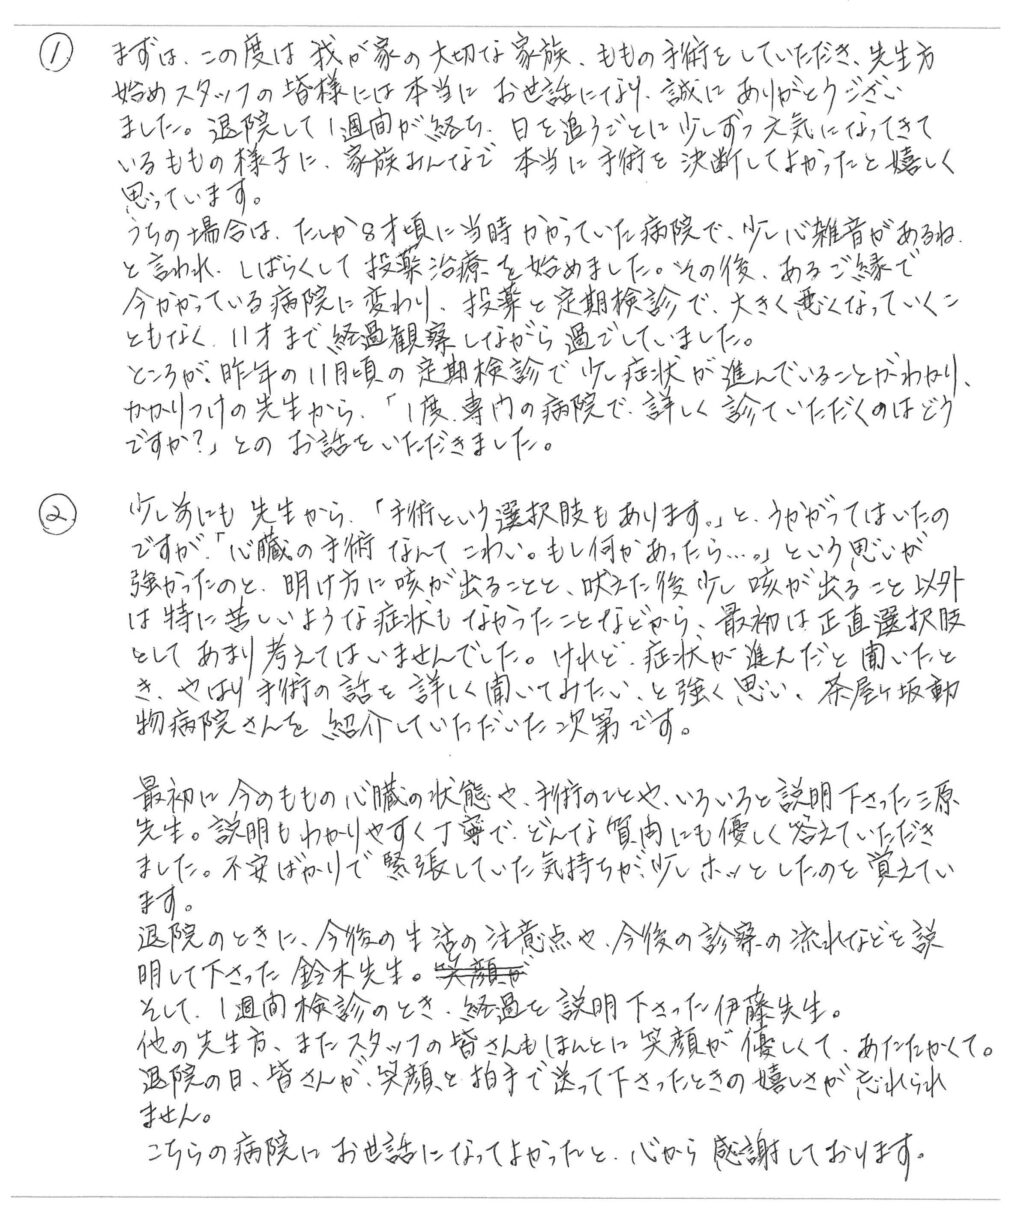 ① まずは、この度は我が家の大切な家族、ももの手術をしていただき、先生方
始めスタッフの皆様には本当にお世話になり、誠にありがとうござい
ました。退院して1週間が経ち、日を追うごとに少しずつ元気になってきて
いるももの様子に、家族みんなで本当に手術を決断してよかったと嬉しく
思っています。
うちの場合は、たしか8才頃に当時かかっていた病院で、少し心雑音があるね、
と言われ、しばらくして投薬治療を始めました。その後、あるご縁で
今かかっている病院に変わり、投薬と定期検診で、大きく悪くなっていくこ
ともなく、11才まで経過観察しながら過ごしていました。
ところが、昨年の11月頃の定期検診で少し症状が進んでいることがわかり、
かかりつけの先生から、「1度、専門の病院で、詳しく診ていただくのはどう
ですか?」とのお話をいただきました。
② 少し前にも先生から、「手術という選択肢もあります。」と、うかがってはいたの
ですが、「心臓の手術なんてこわい。もし何かあったら…。」という思いが
強かったのと、明け方に咳が出ることと、吠えた後少し咳が出ること以外
は特に苦しいような症状もなかったことなどから、最初は正直選択肢
としてあまり考えてはいませんでした。けれど、症状が進んだと聞いたと
き、やはり手術の話を詳しく聞いてみたい、と強く思い、茶屋ヶ坂動
物病院さんを紹介していただいた次第です。
最初に今のももの心臓の状態や、手術のひとや、いろいろと説明下さった三原
先生。説明もわかりやすく丁寧で、どんな質問にも優しく答えていただき
ました。不安ばかりで緊張していた気持ちが、少しホッとしたのを覚えてい
ます。
退院のときに、今後の生活の注意点や、今後の診察の流れなどを説
明して下さった鈴木先生。笑顔が
そして、1週間検診のとき、経過を説明下さった伊藤先生。
他の先生方、またスタッフの皆さんもほんとに笑顔が優しくて、あたたかくて。
退院の日、皆さんが、笑顔と拍手で送って下さったときの嬉しさが忘れられ
ません。
こちらの病院にお世話になってよかったと、心から感謝しております。